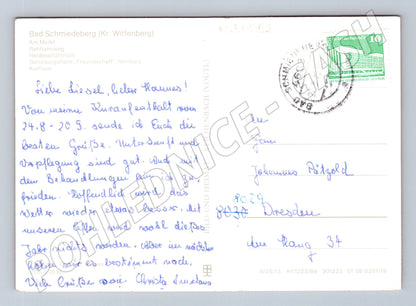 Bad Schmiedeberg (Kr. Wittenberg)
Am Markt
Rathauseingang
Heidesanatorium
Genesungsheim „Freundschaft“
Kurhaus
Liebe Liesel, lieber Hannes!
Von meinem Kuraufenthalt vom
24.8 - 20.9. sende ich Euch die
besten Grüße. Unterkunft und
Verpflegung sind gut. Auch mit
den Behandlungen bin ich zu-
frieden. Hoffentlich wird das
Wetter wieder etwas besser. Mit
unserem Treffen wird wohl dieses
Jahr nichts werden. Aber im nächsten
es bestimmt noch.
Viele Grüße von Christa
10
BAD SCHMIEDEBERG
An
Fam.
Johannes
8029
8030 Dresden
Am Hang 34
POHLEDNICE - SMASH